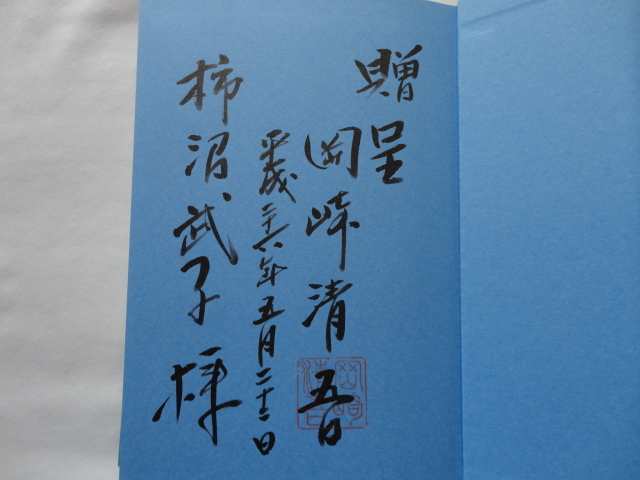 贈呈
岡崎清吾
平成二十六年五月二十二日
柿沼武子様